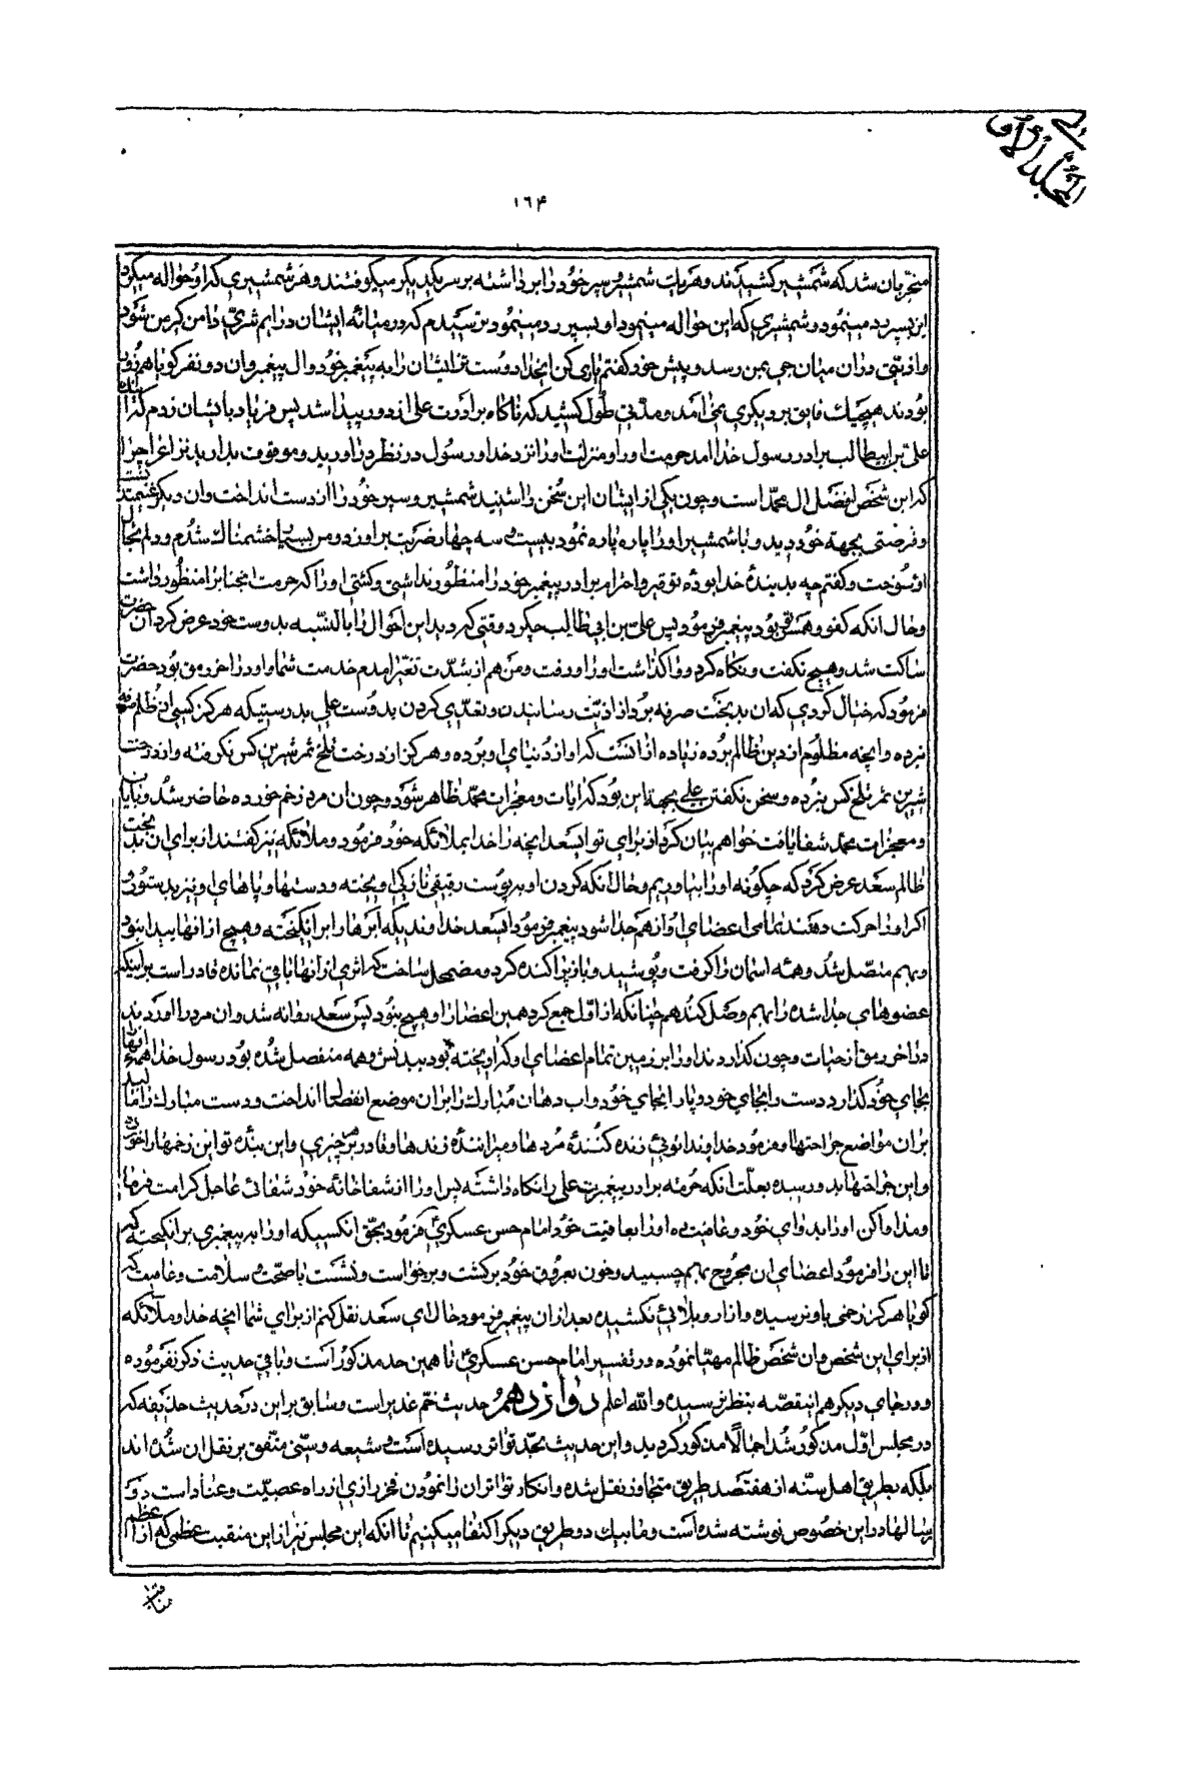 المجلد الاول
۱۶۴
منجر بان شد که شمشیر کشیدند و هر یک شمشیر و سپر خود را برداشته بر سر یکدیگر میکوفتند و هر شمشیری که او حواله میکرد
این بسپر رد مینمود و شمشیری که این حواله مینمود او بسپر رد مینمود ترسیدم که در میانه ایشان درایم شری دامن گیر من شود
و اذیتی دران میان بمن رسد و پیش خود گفتم یاری کن ایخدا دوست تر ایشان را به پیغمبر خود و ال پیغمبر و ان دو نفر گویا هم زور
بودند هیچیک فایق بر دیگری نمی امد و مدتی طول کشید که ناگاه برادرت علی از دور پیدا شد پس فریاد بایشان زدم که اینک
علی بن ابیطالب برادر رسول خدا امد حرمت او را و منزلت او را نزد خدا و رسول در نظر دراورید و موقوف بدارید نزاع را چرا
که این شخص افضل ال محمد است و چون یکی از ایشان این سخن را شنید شمشیر و سپر خود را از دست انداخت وان دیگر غنیمت دانست
و فرصتی بجهة خود دید و با شمشیر او را پاره پاره نمود بیست و سه چهار ضربت بر او زد و من بسیار خشمناک شدم و دلم بحال
او سوخت و گفتم چه بد بندهٔ خدا بودهٔ توقیر و احترام برادر پیغمبر خود را منظور نداشتی و کشتی او را که حرمت انجناب را منظور داشت
و حال انکه کفو و همسر تو بود پیغمبر فرمود پس علی بن ابی طالب چکرد وقتی که دید این احوال را بالنسبه بدوست خود عرض کرد ان حضرت
ساکت شد و هیچ نگفت و نگاه کرد و واگذاشت او را و رفت و من هم از شدت تغیر امدم خدمت شما و او در اخر رمق بود حضرت
فرمود که خیال کردی که ان بدبخت صرفه برد از اذیت رسانیدن و تعدی کردن بدوست علی بدرستیکه هرگز کسی از ظلم صرفه
نبرده و انچه مظلوم از دین ظالم برده زیاده از انست که او از دنیای او برده و هرگز از درخت تلخ ثمر شیرین کس نگرفته و از درخت
شیرین ثمر تلخ کس نبرده و سخن نگفتن علی بجهة این بود که ایات و معجزات محمد ظاهر شود و چون ان مرد زخم خورده حاضر شد و بایات
و معجزات محمد شفا یافت خواهم بیان کرد از برای تو ایسعد انچه را خدا بملائکه خود فرمود و ملائکه نیز گفتند از برای ان بدبخت
ظالم سعد عرض کرد که چگونه او را بیاوریم و حال انکه گردن او بر پوست رقیقی نازکی اویخته و دستها و پاهای او نیز بدستور و
اگر او را حرکت دهند تمامی اعضای او از هم جدا شود پیغمبر فرمود ایسعد خداوندیکه ابرها را برانگیخته و هیچ از انها پیدا نبود
و بهم متصل شد و همه اسمان را گرفت و پوشید و باز پراکنده کرد و مضمحل ساخت که اثری از انها باقی نمانده قادر است بر اینکه
عضوهای جدا شده را بهم وصل کند همچنانکه از اول جمع کرد همین اعضا را و هیچ نبود پس سعد روانه شد وان مرد را اوردند
در اخر رمق از حیات و چون گذاردند او را بر زمین تمام اعضای او که اویخته بود ببدنش و همه منفصل شده بود رسول خدا همه انها
بجای خود گذارد دست را بجای خود و پا را بجای خود و اب دهان مبارک را بران موضع انقطاع انداخت و دست مبارک را مالید
بران مواضع جراحتها و فرمود خداوندا توئی زنده کنندهٔ مردها و میرانندهٔ زندها و قادر بر هر چیزی و این بنده تو این زخمها را خورده
و این جراحتها بدو رسیده بعلت انکه حرمة برادر پیغمبرت علی را نگاه داشته پس او را از شفاخانهٔ خود شفائی عاجل کرامت فرما
و مداوا کن او را بدوای خود و عافیت ده او را بعافیت خود امام حسن عسکری فرمود بحق انکسیکه او را به پیغمبری برانگیخته که
تا این را فرمود اعضای ان مجروح بهم چسبید و خون بعروق خود برگشت و برخواست و نشست با صحت و سلامت و عافیت که
گویا هرگز زخمی باو نرسیده و ازار و بلائی نکشیده بعد از ان پیغمبر فرمود حال ای سعد نقل کنم از برای شما انچه خدا و ملائکه
از برای این شخص وان شخص ظالم مهیا نموده و در تفسیر امام حسن عسکری تا همین حد مذکور است و باقی حدیث ذکر نفرموده
و در جای دیگر هم اینقصه بنظر نرسیده والله اعلم دوازدهم حدیث خم غدیر است و سابق بر این در حدیث حذیفه که
در مجلس اول مذکور شد اجمالا مذکور گردید و این حدیث بحد تواتر رسیده است و شیعه و سنی متفق بر نقل ان شده اند
بلکه بطریق اهل سنه از هفتصد طریق متجاوز نقل شده و انکار تواتر ان را نمودن فخر رازی از راه عصبیت و عناد است و
رسالها در این خصوص نوشته شده است و ما بیک دو طریق دیگر اکتفا میکنیم تا انکه این مجلس نیز از این منقبت عظمی که از اعظم
مناقب